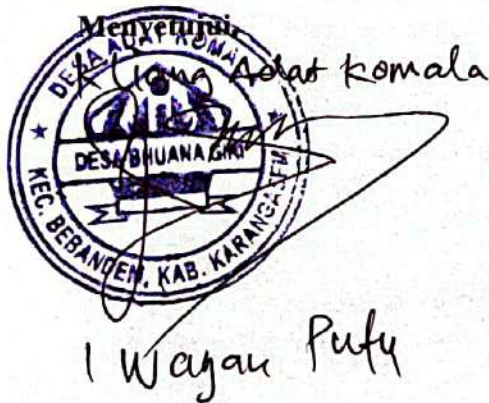 Menyetujui,
Kliang Adat Komala
DESA ADAT KOMALA
DESA BHUANA GIRI
KEC. BEBANDEM, KAB. KARANGASEM
I Wayan Putu